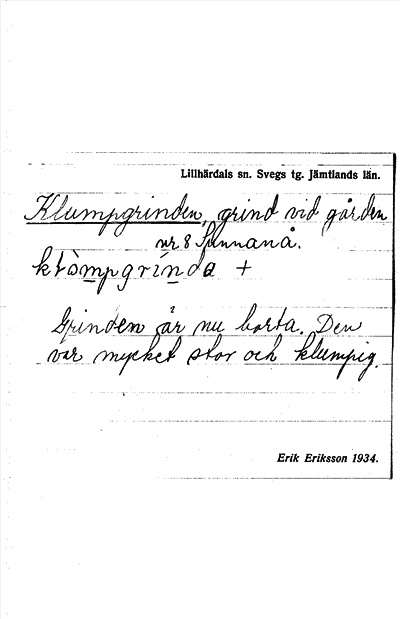 Lillhärdals sn. Svegs tg. Jämtlands län.
Klumpgrinden, grind vid gården
nr 8 Sunnanå.
klòmpgrìnda +
Grinden är nu borta. Den
var mycket stor och klumpig.
Erik Eriksson 1934.